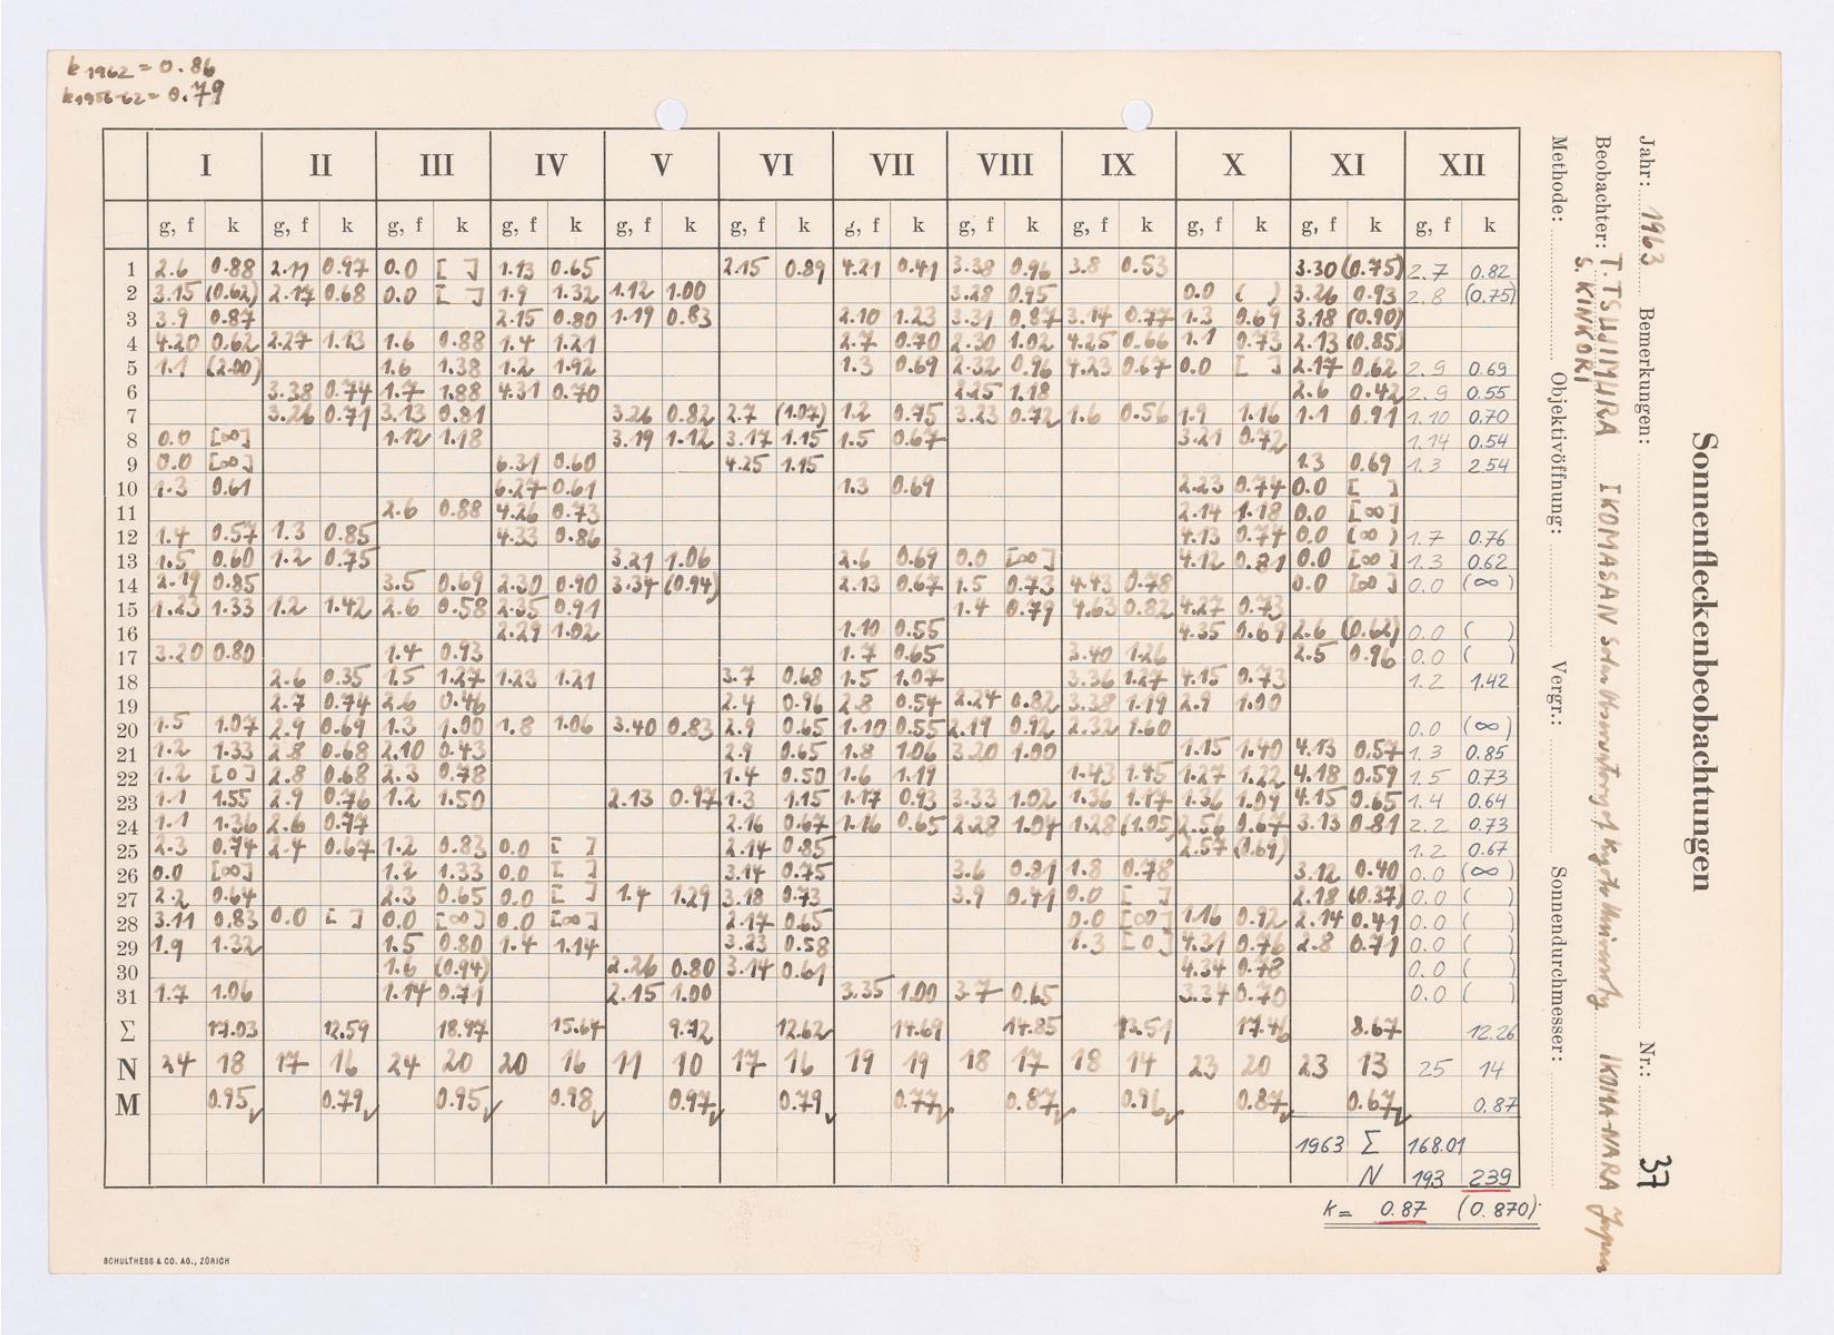 k 1962 = 0.86
k 1956-62 = 0.79
Sonnenfleckenbeobachtungen
Jahr: 1963 Bemerkungen: Nr.: 37
Beobachter: T. TSUJIMURA IKOMASAN Solar Observatory of Kyoto University IKOMA-NARA Japan
S. KINKORI
Methode: Objektivöffnung: Vergr.: Sonnendurchmesser:
I II III IV V VI VII VIII IX X XI XII
g, f k g, f k g, f k g, f k g, f k g, f k g, f k g, f k g, f k g, f k g, f k g, f k
1 2.6 0.88 2.11 0.97 0.0 [ ] 1.13 0.65 2.15 0.89 4.21 0.41 3.38 0.96 3.8 0.53 3.30 (0.75) 2.7 0.82
2 3.15 (0.62) 2.17 0.68 0.0 [ ] 1.9 1.32 1.12 1.00 3.28 0.95 0.0 ( ) 3.26 0.93 2.8 (0.75)
3 3.9 0.87 2.15 0.80 1.19 0.83 2.10 1.23 3.31 0.87 3.14 0.77 1.3 0.69 3.18 (0.90)
4 4.20 0.62 2.27 1.13 1.6 0.88 1.4 1.21 2.7 0.70 2.30 1.02 4.25 0.66 1.1 0.73 2.13 (0.85)
5 1.1 (2.00) 1.6 1.38 1.2 1.92 1.3 0.69 2.32 0.96 4.23 0.67 0.0 [ ] 2.17 0.62 2.9 0.69
6 3.38 0.74 1.7 1.88 4.31 0.70 2.25 1.18 2.6 0.42 2.9 0.55
7 3.26 0.71 3.13 0.81 3.26 0.82 2.7 (1.07) 1.2 0.75 3.23 0.72 1.6 0.56 1.9 1.16 1.1 0.91 1.10 0.70
8 0.0 [∞] 1.12 1.18 3.19 1.12 3.17 1.15 1.5 0.67 3.21 0.72 1.14 0.54
9 0.0 [∞] 6.31 0.60 4.25 1.15 1.3 0.69 1.3 2.54
10 1.3 0.61 6.27 0.61 1.3 0.69 2.23 0.74 0.0 [ ]
11 2.6 0.88 4.26 0.73 2.14 1.18 0.0 [∞]
12 1.4 0.57 1.3 0.85 4.33 0.86 4.13 0.74 0.0 (∞) 1.7 0.76
13 1.5 0.60 1.2 0.75 3.21 1.06 2.6 0.69 0.0 [∞] 4.12 0.81 0.0 [∞] 1.3 0.62
14 2.19 0.85 3.5 0.69 2.30 0.90 3.34 (0.94) 2.13 0.67 1.5 0.73 4.43 0.78 0.0 [∞] 0.0 (∞)
15 1.23 1.33 1.2 1.42 2.6 0.58 2.35 0.91 1.4 0.79 4.63 0.82 4.27 0.73
16 2.29 1.02 1.10 0.55 4.35 0.69 2.6 (0.62) 0.0 ( )
17 3.20 0.80 1.4 0.93 1.7 0.65 3.40 1.26 2.5 0.96 0.0 ( )
18 2.6 0.35 1.5 1.27 1.23 1.21 3.7 0.68 1.5 1.07 3.36 1.27 4.15 0.73 1.2 1.42
19 2.7 0.74 2.6 0.46 2.4 0.96 2.8 0.54 2.24 0.82 3.38 1.19 2.9 1.00
20 1.5 1.07 2.9 0.69 1.3 1.00 1.8 1.06 3.40 0.83 2.9 0.65 1.10 0.55 2.19 0.92 2.32 1.60 0.0 (∞)
21 1.2 1.33 2.8 0.68 2.10 0.43 2.9 0.65 1.8 1.06 3.20 1.00 1.15 1.40 4.13 0.57 1.3 0.85
22 1.2 [0] 2.8 0.68 2.3 0.78 1.4 0.50 1.6 1.19 1.43 1.45 1.27 1.22 4.18 0.59 1.5 0.73
23 1.1 1.55 2.9 0.76 1.2 1.50 2.13 0.97 1.3 1.15 1.17 0.93 3.33 1.02 1.36 1.17 1.36 1.09 4.15 0.65 1.4 0.64
24 1.1 1.36 2.6 0.77 2.16 0.67 1.16 0.65 2.28 1.04 1.28 (1.05) 2.56 0.67 3.13 0.81 2.2 0.73
25 2.3 0.74 2.4 0.67 1.2 0.83 0.0 [ ] 2.14 0.85 2.57 (0.69) 1.2 0.67
26 0.0 [∞] 1.2 1.33 0.0 [ ] 3.14 0.75 3.6 0.81 1.8 0.78 3.12 0.40 0.0 (∞)
27 2.2 0.64 2.3 0.65 0.0 [ ] 1.4 1.29 3.18 0.73 3.9 0.41 0.0 [ ] 2.18 (0.37) 0.0 ( )
28 3.11 0.83 0.0 [ ] 0.0 [∞] 0.0 [∞] 2.17 0.65 0.0 [∞] 1.16 0.92 2.14 0.41 0.0 ( )
29 1.9 1.32 1.5 0.80 1.4 1.14 3.23 0.58 1.3 [0] 4.31 0.76 2.8 0.71 0.0 ( )
30 1.6 (0.94) 2.26 0.80 3.14 0.61 4.34 0.78 0.0 ( )
31 1.7 1.06 1.14 0.71 2.15 1.00 3.35 1.00 3.7 0.65 3.34 0.70 0.0 ( )
Σ 17.03 12.59 18.97 15.64 9.72 12.62 14.69 14.85 13.51 17.46 8.67 12.26
N 24 18 17 16 24 20 20 16 11 10 17 16 19 19 18 17 18 14 23 20 23 13 25 14
M 0.95 0.79 0.95 0.98 0.97 0.79 0.77 0.87 0.96 0.87 0.67 0.87
1963 Σ 168.01
N 193 239
k = 0.87 (0.870)
SCHULTHESS & CO. AG., ZÜRICH